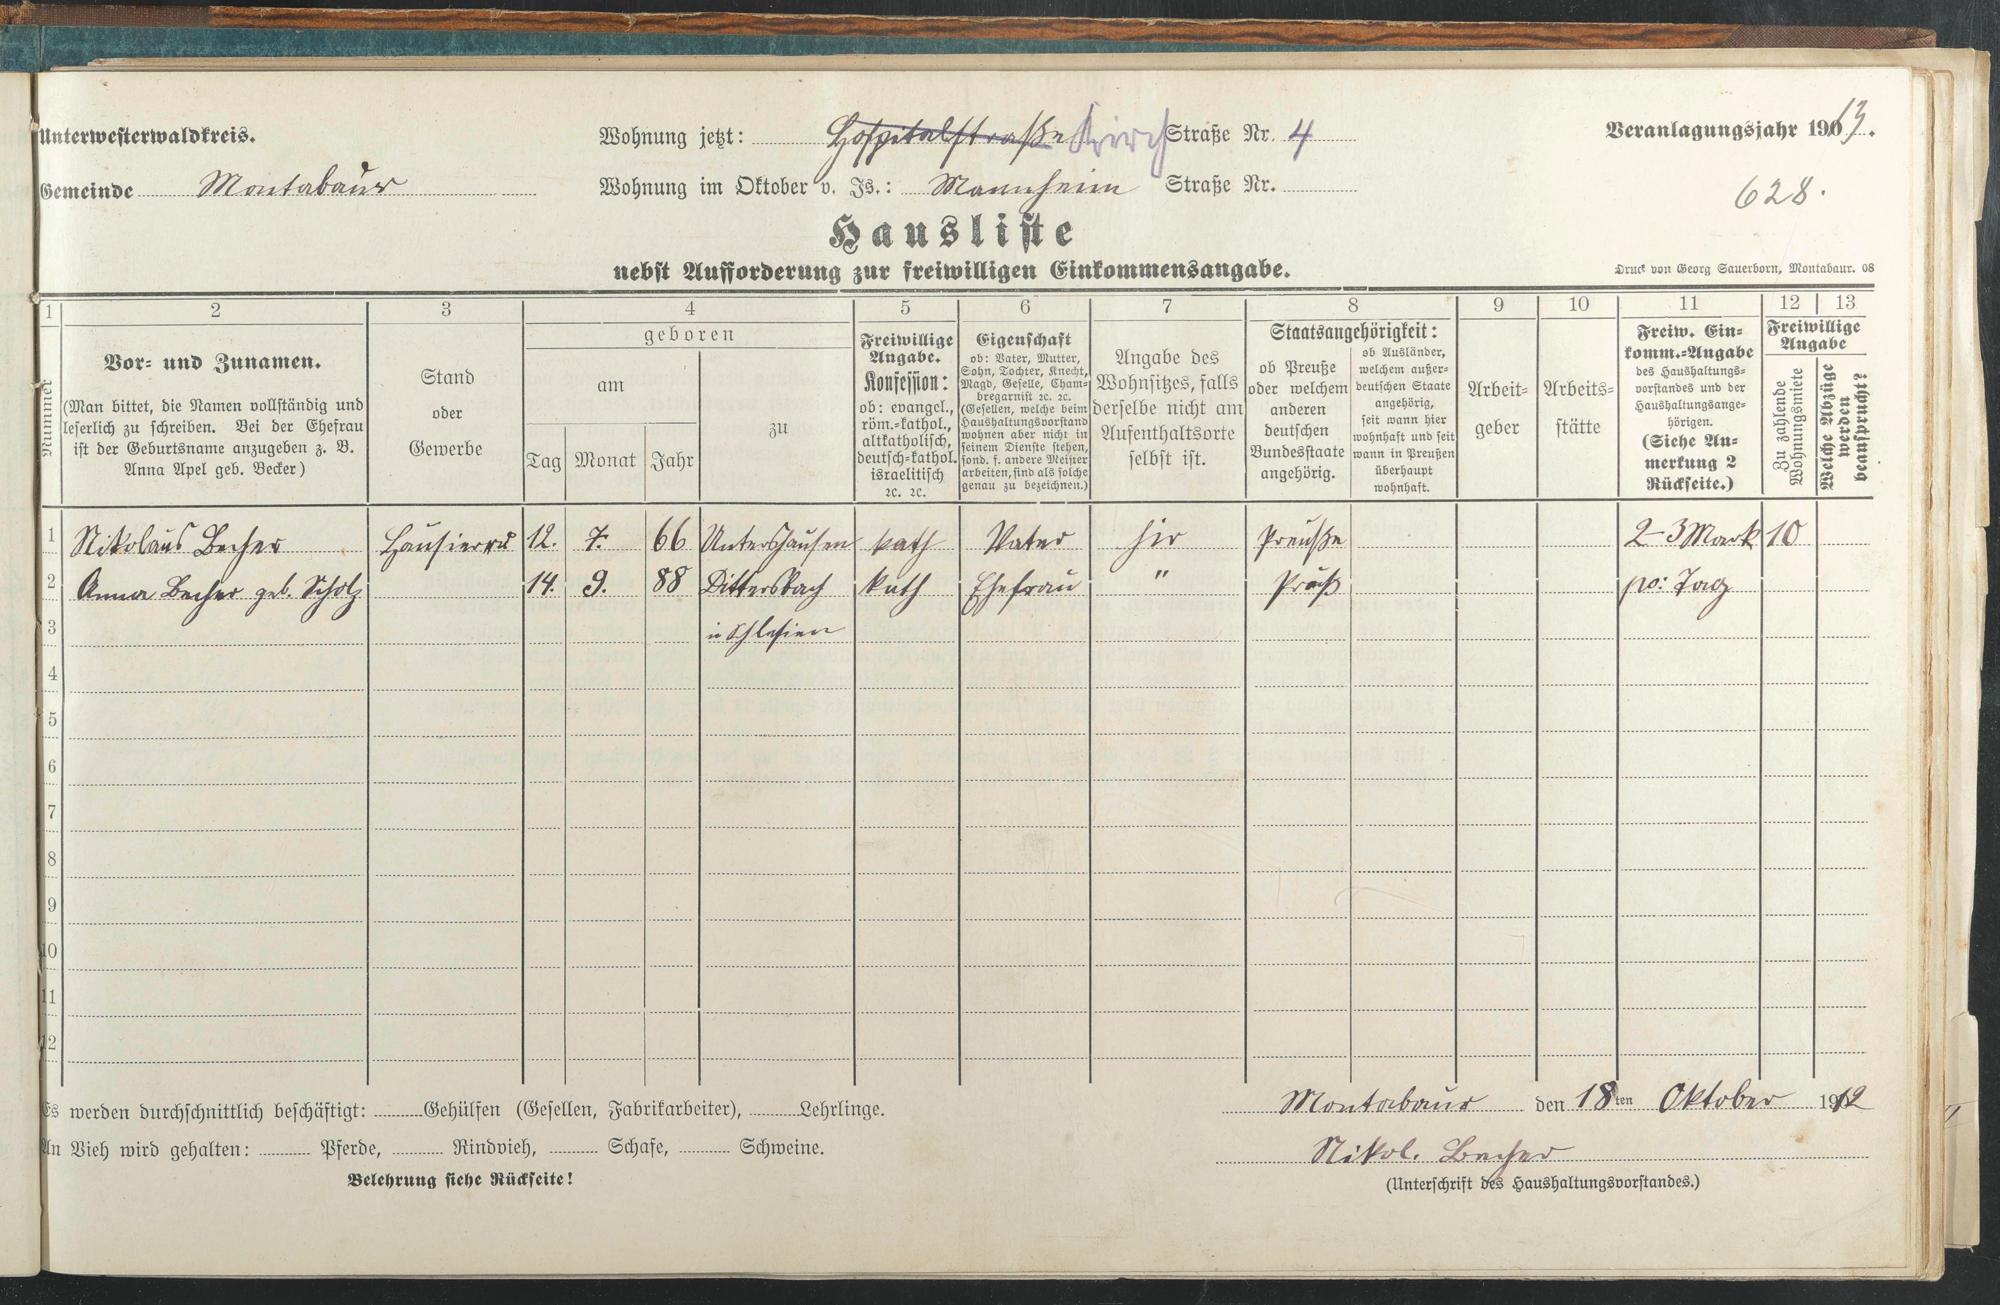 Unterwesterwaldkreis.
Wohnung jetzt: Hospitalstraße Kirch Straße Nr. 4
Veranlagungsjahr 1913.
Gemeinde Montabaur
Wohnung im Oktober v. Js.: Mannheim Straße Nr.
628.
Hausliste
nebst Aufforderung zur freiwilligen Einkommensangabe.
Druck von Georg Sauerborn, Montabaur. 08
1 2 3 4 5 6 7 8 9 10 11 12 13
Nummer
Vor- und Zunamen.
(Man bittet, die Namen vollständig und
leserlich zu schreiben. Bei der Ehefrau
ist der Geburtsname anzugeben z. B.
Anna Apel geb. Becker)
Stand
oder
Gewerbe
geboren
am
Tag Monat Jahr
zu
Freiwillige
Angabe.
Konfession:
ob: evangel.,
röm.-kathol.,
altkatholisch,
deutsch-kathol.
israelitisch
ꝛc. ꝛc.
Eigenschaft
ob: Vater, Mutter,
Sohn, Tochter, Knecht,
Magd, Geselle, Cham-
bregarnist ꝛc. ꝛc.
(Gesellen, welche beim
Haushaltungsvorstand
wohnen aber nicht in
seinem Dienste stehen,
sond. f. andere Meister
arbeiten, sind als solche
genau zu bezeichnen.)
Angabe des
Wohnsitzes, falls
derselbe nicht am
Aufenthaltsorte
selbst ist.
Staatsangehörigkeit:
ob Preuße
oder welchem
anderen
deutschen
Bundesstaate
angehörig.
ob Ausländer,
welchem außer-
deutschen Staate
angehörig,
seit wann hier
wohnhaft und seit
wann in Preußen
überhaupt
wohnhaft.
Arbeit-
geber
Arbeits-
stätte
Freiw. Ein-
komm.-Angabe
des Haushaltungs-
vorstandes und der
Haushaltungsange-
hörigen.
(Siehe An-
merkung 2
Rückseite.)
Freiwillige
Angabe
Zu zahlende
Wohnungsmiete
Welche Abzüge
werden
beansprucht?
1 Nikolaus Becher Hausierer 12. 7. 66 Untershausen kath Vater hir Preuße 2-3 Mark 10
2 Anna Becher geb. Scholz 14. 9. 88 Dittersbach kath Ehefrau " Preuß po: Tag
3 in Schlesien
4
5
6
7
8
9
10
11
12
Es werden durchschnittlich beschäftigt: Gehülfen (Gesellen, Fabrikarbeiter), Lehrlinge.
Montabaur den 18ten Oktober 1912
An Vieh wird gehalten: Pferde, Rindvieh, Schafe, Schweine.
Nikol. Becher
Belehrung siehe Rückseite!
(Unterschrift des Haushaltungsvorstandes.)